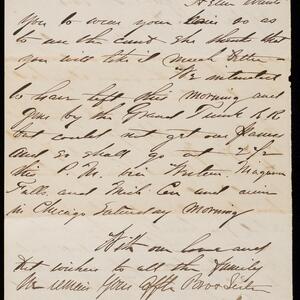 Helen wants
you to wear your hair so as
to use the she thinks that
you will like it much better
We intended
to have left this morning and
gone by the Grand Trunk R R
but could not get our
and so shall go at
this P. M. via Niagara
Falls and Mich. Cen and arrive
in Chicago Saturday Morning
With our love and
best wishes to all the family
We remain Yours affte